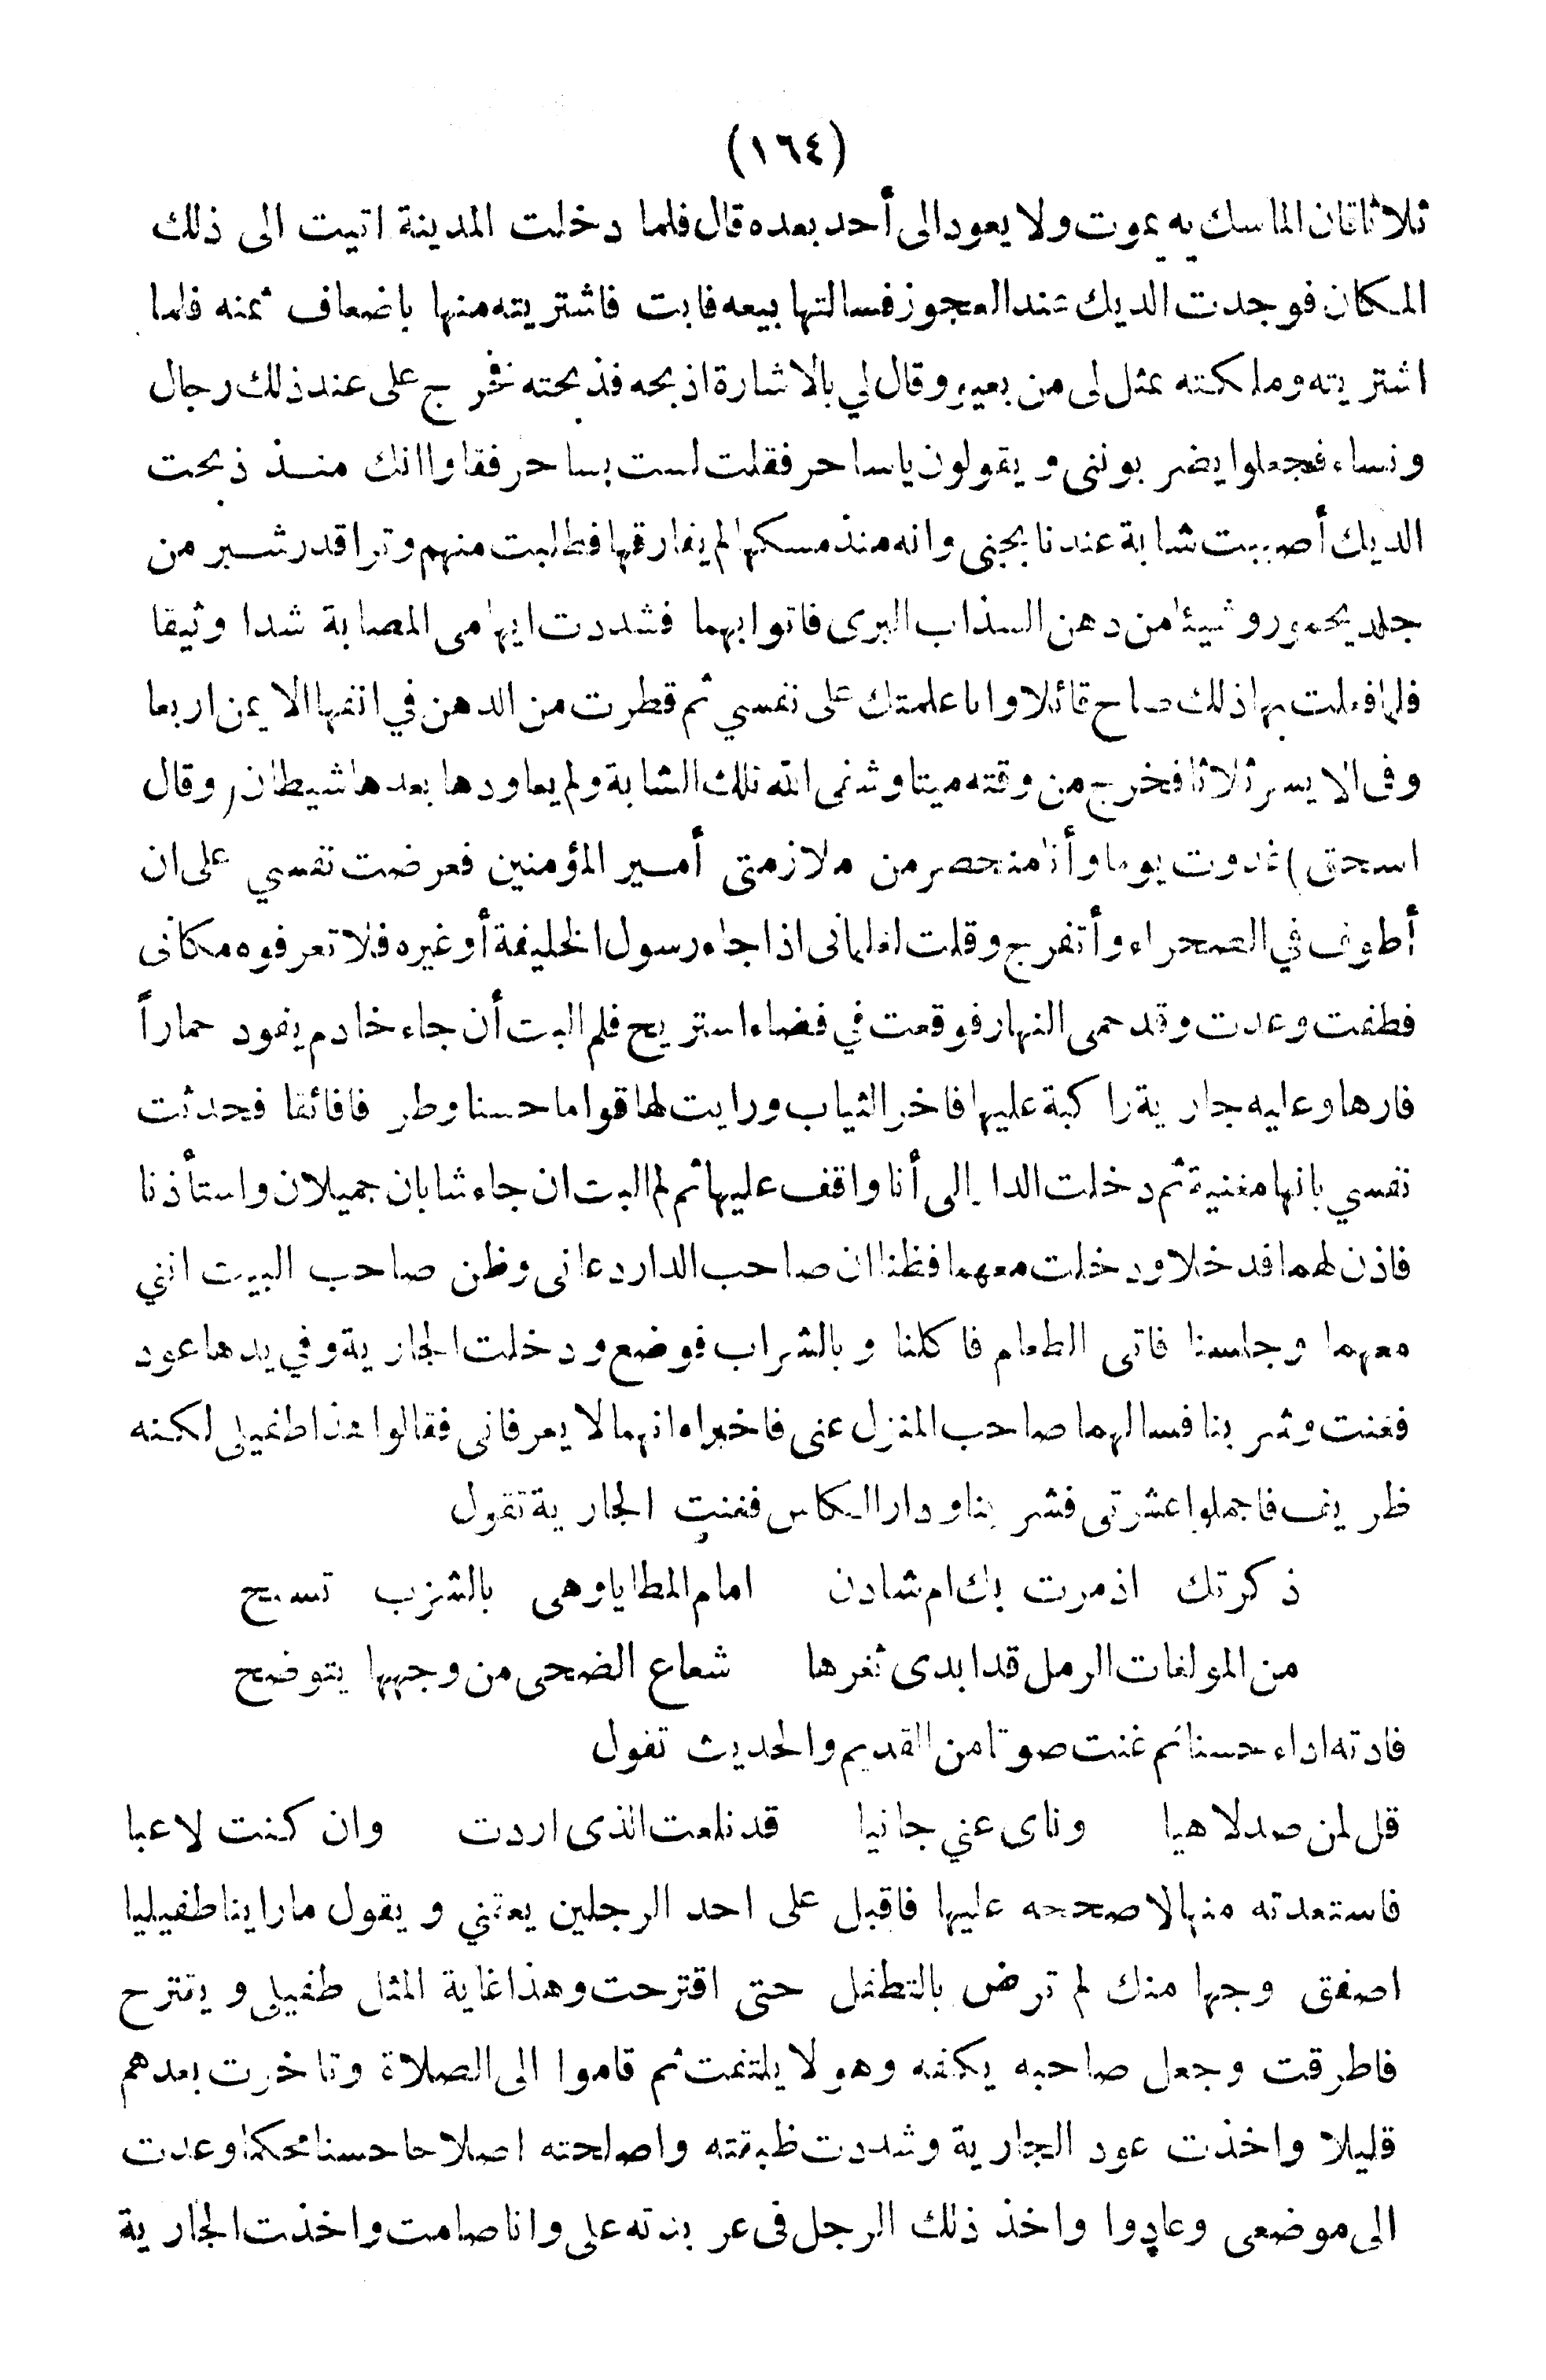 (١٦٤)
ثلاثا فان الماسك به يموت ولا يعود الى أحد بعده قال فلما دخلت المدينة اتيت الى ذلك
المكان فوجدت الديك عند العجوز فسالتها بيعه فابت فاشتريته منها باضعاف ثمنه فلما
اشتريته وملكته تمثل لى من بعيد وقال لي بالاشارة اذبحه فذبحته فخرج على عند ذلك رجال
ونساء فجعلوا يضربوننى ويقولون ياساحر فقلت لست بساحر فقاوا انك منذ ذبحت
الديك أصيبت شابة عندنا بجنى وانه منذ مسكها لم يفارقها فطلبت منهم وترا قدر شبر من
جلد يحمور وشيئا من دهن السذاب البرى فاتوا بهما فشددت ابهامى المصابة شدا وثيقا
فلما فعلت بها ذلك صاح قائلا وانا علمتك على نفسي ثم قطرت من الدهن في انفها الايمن اربعا
وفى الايسر ثلاثا فخرج من وقته ميتا وشفى الله تلك الشابة ولم يعاودها بعدها شيطان (وقال
اسحق) غدوت يوما وأنا منحصر من ملازمتى أمير المؤمنين فعرضت نفسي على ان
أطوف في الصحراء وأتفرج وقلت لغلمانى اذا جاء رسول الخليفة أو غيره فلا تعرفوه مكانى
فطفت وعدت وقد حمى النهار فوقعت في فضاء استريح فلم البث أن جاء خادم يقود حماراً
فارها وعليه جارية راكبة عليها فاخر الثياب ورايت لها قواما حسنا وطرفا فائقا فحدثت
نفسي بانها مغنية ثم دخلت الدار الى أنا واقف عليها ثم لم البث ان جاء شابان جميلان واستأذنا
فاذن لهما فدخلا ودخلت معهما فظنا ان صاحب الدار دعانى وظن صاحب البيت انني
معهما وجلسنا فاتى الطعام فاكلنا وبالشراب فوضع ودخلت الجارية وفي يدها عود
فغنت وشربنا فسالهما صاحب المنزل عنى فاخبراه انهما لا يعرفانى فقالوا هذا طفيلى لكنه
ظريف فاجملوا عشرتى فشربنا ودار الكاس فغنت الجارية تقول
ذكرتك اذمرت بك ام شادن امام المطايا وهى بالشزب تسبح
من المولفات الرمل قد ابدى ثغرها شعاع الضحى من وجهها يتوضح
فادته اداء حسنا ثم غنت صوتا من القديم والحديث تقول
قل لمن صد لاهيا وناى عني جانيا قد نلعت الذى اردت وان كنت لاعبا
فاستعدته منها لاصححه عليها فاقبل على احد الرجلين يعتني ويقول ما راينا طفيليا
اصفق وجها منك لم ترض بالتطفل حتى اقترحت وهذا غاية المثل طفيلى ويقترح
فاطرقت وجعل صاحبه يكفه وهو لا يلتفت ثم قاموا الى الصلاة وتاخرت بعدهم
قليلا واخذت عود الجارية وشددت طبقته واصلحته اصلاحا حسنا محكما وعدت
الى موضعى وعادوا واخذ ذلك الرجل فى عربدته على وانا صامت واخذت الجارية